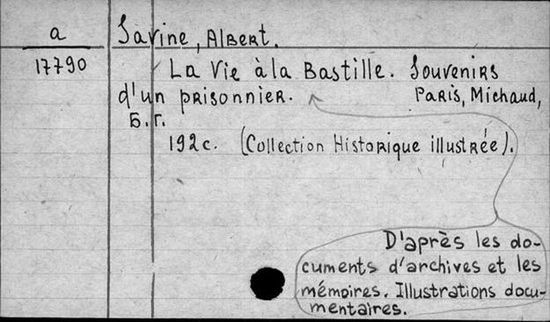 a
17790
Savine, Albert.
La Vie à la Bastille. Souvenirs
d'un prisonnier. Paris, Michaud,
Б.г.
192 с. (Collection Historique illustrée).
D'après les do-
cuments d'archives et les
mémoires. Illustrations docu-
mentaires.